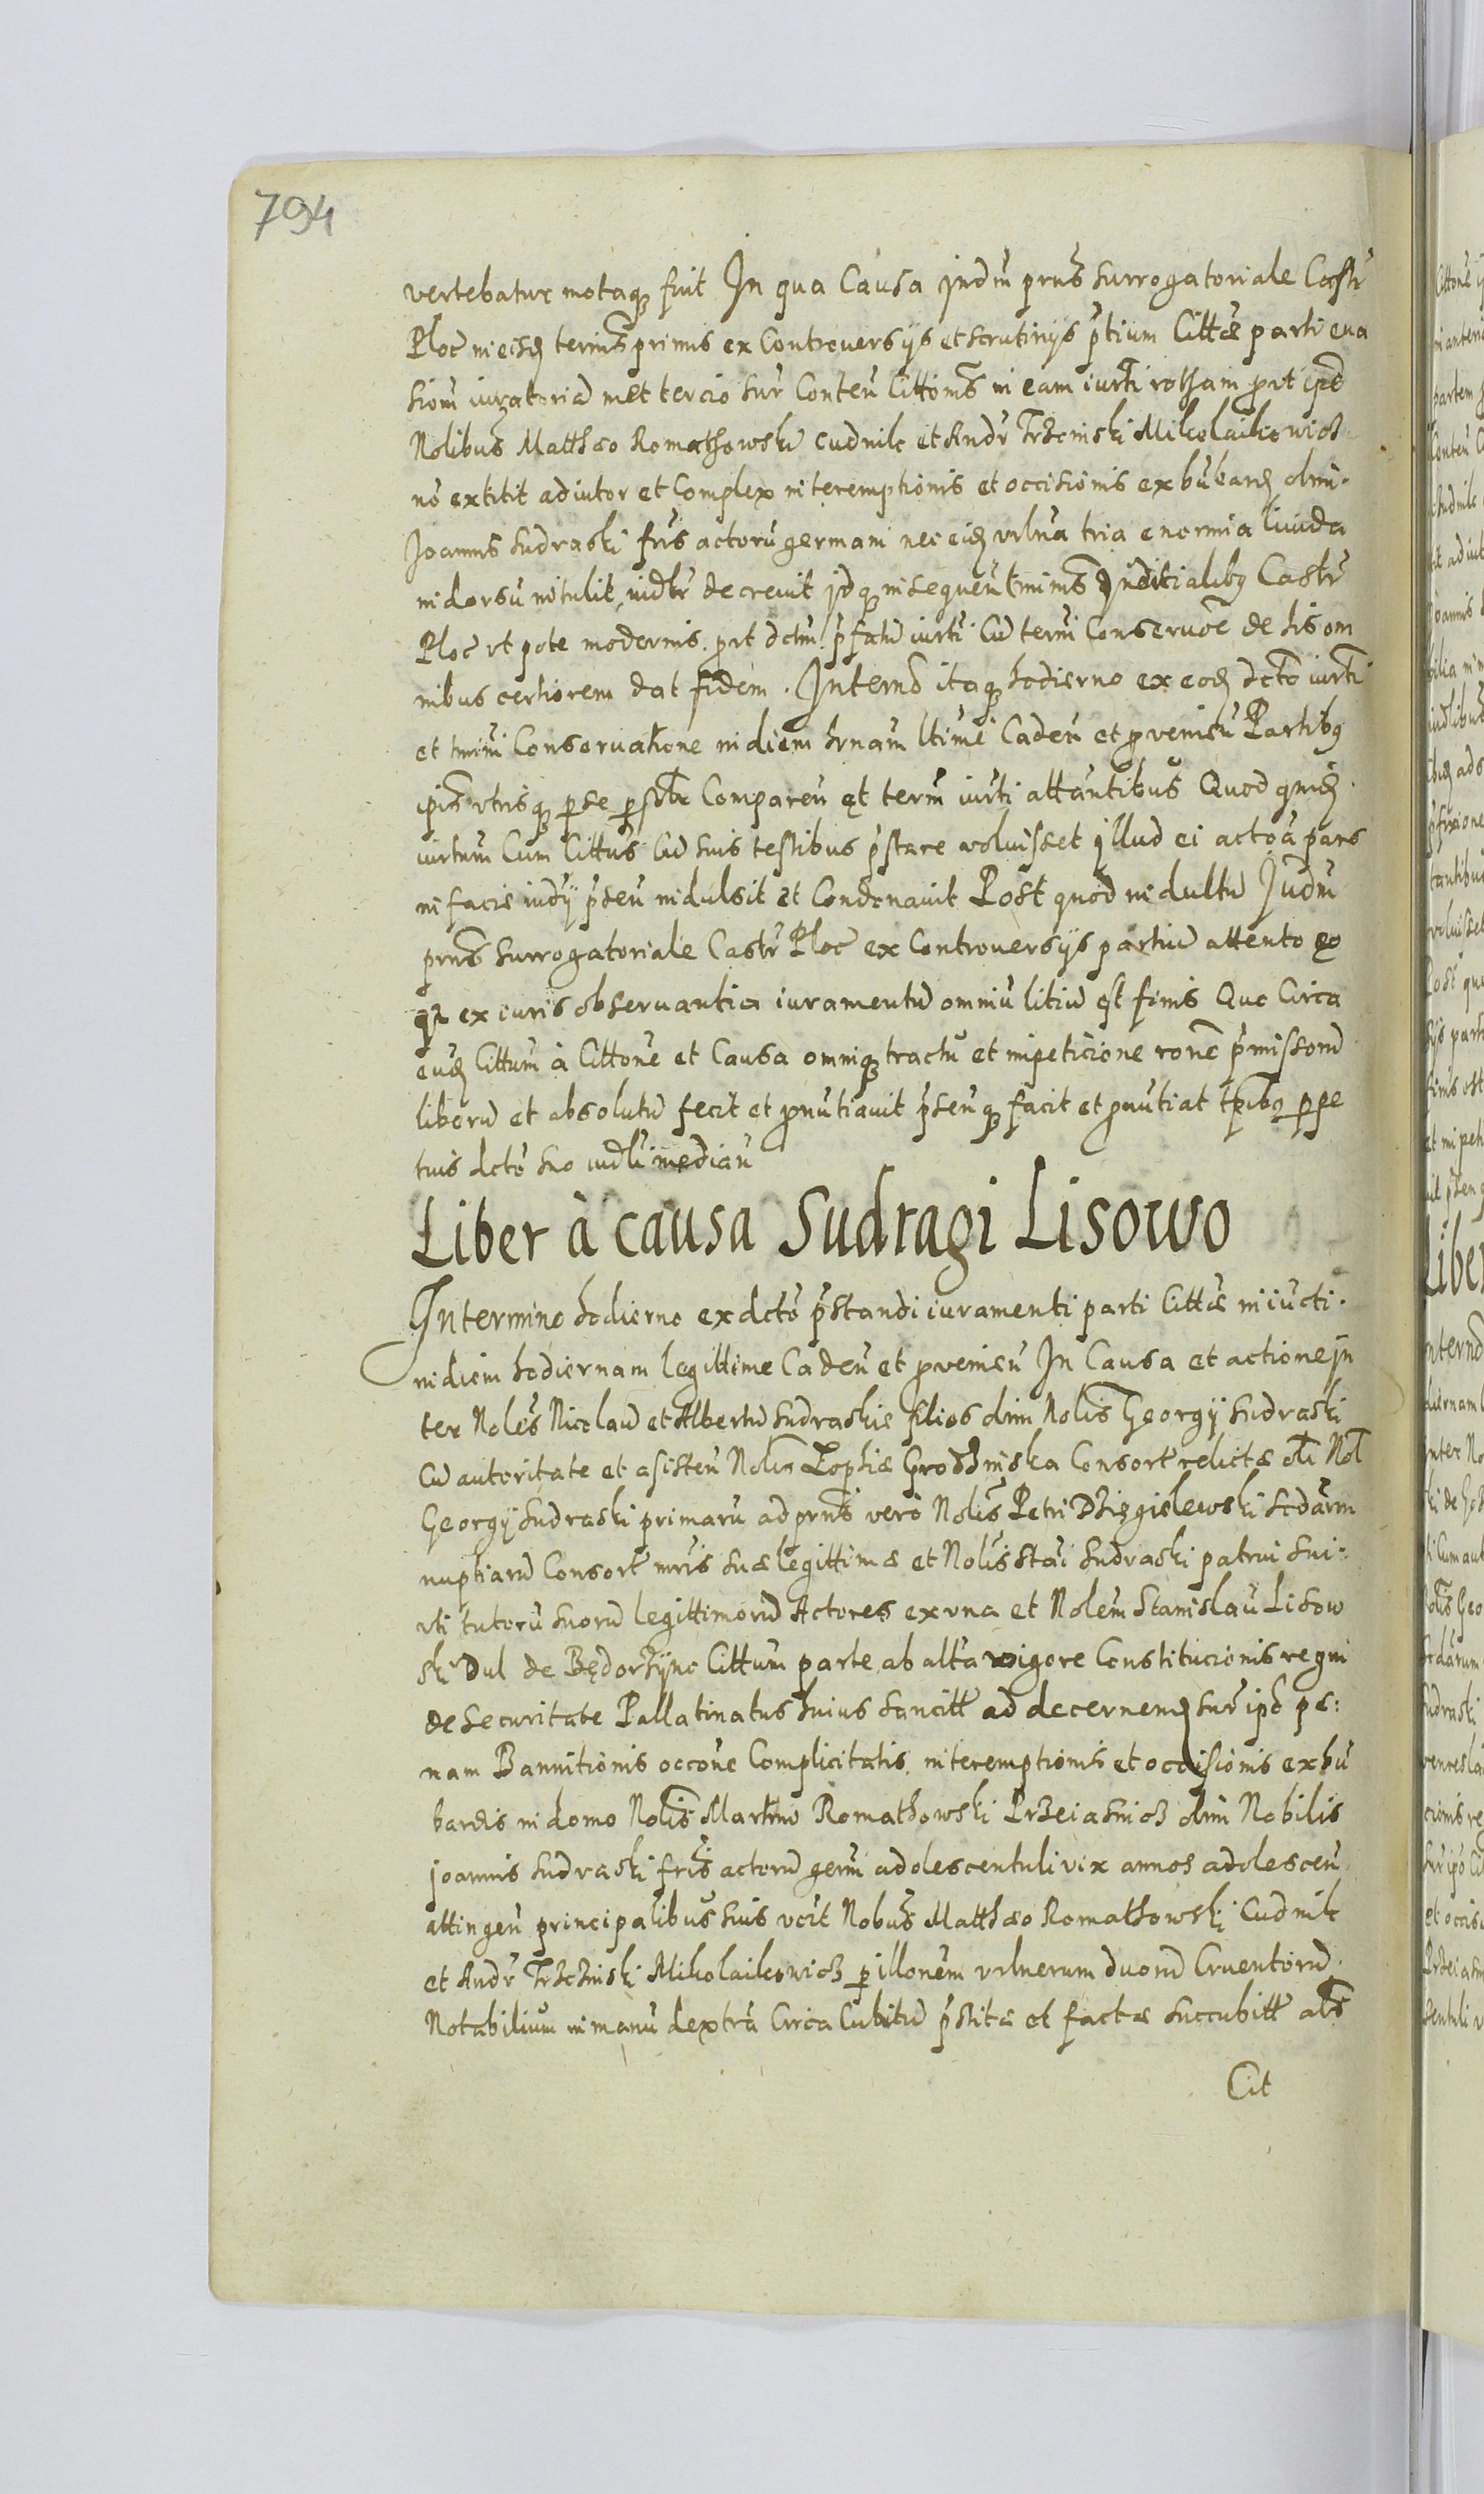 794
vertebatur motaq₃ fuit In qua Causa Judm prns̃ surrogatoriale Castr̃
Ploc̃ in eisd̃ termis̃ primis ex Controuersijs et scrutinijs ptium Cittæ parti eua
sionm̃ iuratoria met tercio sur̃ Conteñ Cittonis̃ in eam iurti rotham prt ipse
Nolibus̃ Matthæo Romathowski Cudnik et Andr̃ Trzcinski Mikolaikowicz
nõ extitit adiutor et Complex interemptionis et occisionis ex būbard̃ olim
Joannis Sudraski fris̃ actorũ germani nec eid̃ vulña tria enormia liuida
in dorsũ intulit, iudltr̃ decreuit jdq₃ in sequeñ tminis̃ Juditialib₉ Castr̃
Ploc̃ vt pote modernis. prt dctm̃ pfatũ iurti Cũ termi Conseruoẽ de his om
nibus certiorem dat fidem. In termõ itaq₃ hodierno ex eod̃ dctõ iurti
et tmini Conseruatione in diem hrnam ltime Cadeñ et prveniẽn Partib₉
ipis̃ vtrisq₃ per se prsõltr Compareñ et term̃ iurti attañtibus Quod quid̃
iurtum Cum Cittus Cũ suis testibus p̃stare voluisset Illud ei actoã pars
in facie iudij p̃señ indulsit et Condonauit Post quod indultũ Judm̃
prns̃ surrogatoriale Castr̃ Ploc̃ ex Controuersijs partiũ attento eo
qz ex iuris obseruantia iuramentũ omniũ litiũ est finis Quo Circa
eũd̃ Cittum à Cittone et Causa omniq₃ tractũ et inpeticione ronẽ p̃missorũ
liberũ et absolutũ fecit et prnũtiauit p̃señq₃ facit et prnũtiat tpib₉ perpe
tuis dctõ suo iudlĩ mediañ
Liber à causa Sudragi Lisowo
In termino hodierno ex dctõ p̃standi iuramenti parti Cittæ iniũcti
in diem hodiernam legittime Cadeñ et prvenieñ In Causa et actione in
ter Noles̃ Nicolaũ et Albertũ Sudraskie filios olim Nolis̃ Georgij Sudraski
Cũ autoritate et asisteñ Nolis̃ Zophiæ Grodzinska Consort̃ relictæ oli Nol̃
Georgij Sudraski primarũ ad prns̃ verò Nolis̃ Petri Dzięgielewski Scdarm̃
nuptiarũ Consort̃ mris̃ suæ legittimæ et Nolis̃ Stai Sudraski patrui sui
vti tutorũ suorũ legittimorũ Actores ex vna et Nolem̃ Stanislaũ Lisow
ski Dul de Będorzyno Cittum parte ab alta vigore Constitucionis regni
de Securitate Pallatinatus huius Sancitt̃ ad decernend̃ sur̃ ipõ pæ:
nam Bannitionis occone Complicitatis, interemptionis et occisionis ex bũ
bardis in domo Nolis̃ Martini Romathowski Przeiasnicz olim Nobilis
Joannis Sudraski fris̃ actorũ germ̃ adolescentuli vix annos adolesceñ
attingeñ principalibus suis vcit̃ Nobus̃ Matthæo Romathowski Cudnik
et Andr̃ Trzcinski Mikolaikowicz per illonem̃ vulnerum duorũ Cruentorũ
Notabiliũm in manũ dextrã Circa Cubitũ p̃stitæ et factæ Succubitt̃ als̃
Cit